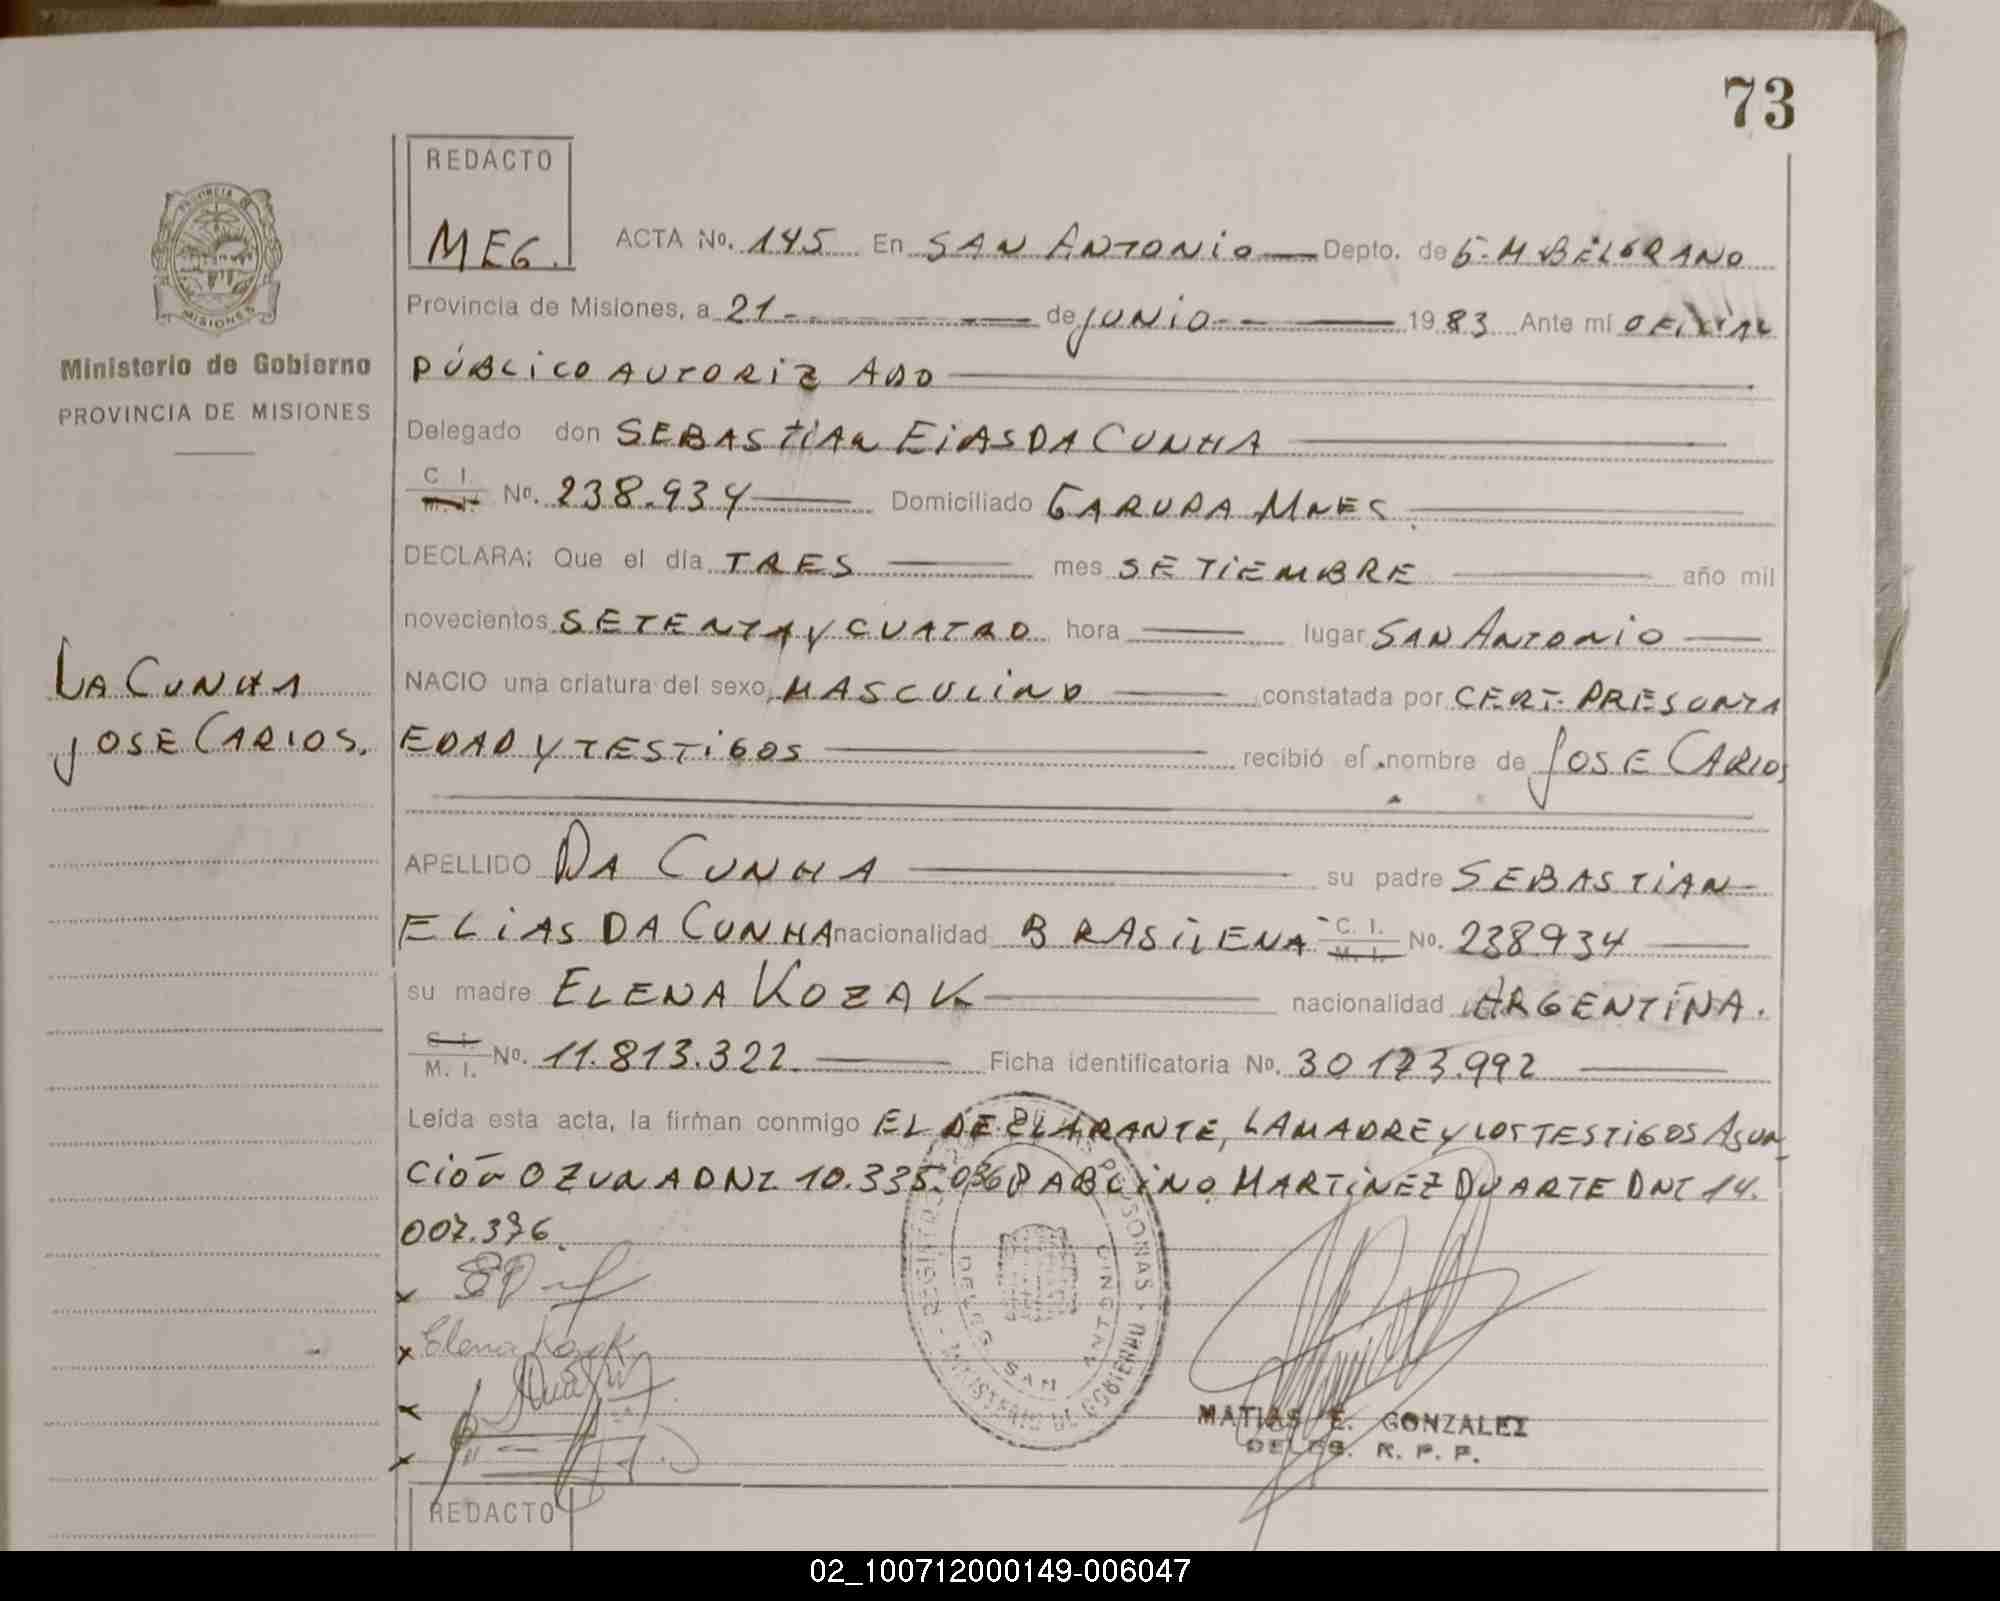 73
REDACTO
MEG.
ACTA No. 145 En SAN ANTONIO Depto. de G. M BELGRANO
Provincia de Misiones, a 21 de junio 1983 Ante mí OFICIAL
PÚBLICO AUTORIZADO
Delegado don SEBASTIAN EIAS DA CUNHA
C. I. M. I. No. 238.934 Domiciliado GARUPA MNES.
DECLARA: Que el día TRES mes SETIEMBRE año mil
novecientos SETENTA y CUATRO hora lugar SAN ANTONIO
NACIO una criatura del sexo MASCULINO constatada por CERT. PRESUNTA
EDAD Y TESTIGOS recibió el nombre de JOSE CARLOS
APELLIDO DA CUNHA su padre SEBASTIAN
ELIAS DA CUNHA nacionalidad BRASILENA C. I. M. I. No. 238934
su madre ELENA KOZAK nacionalidad ARGENTINA.
C. I. M. I. No. 11.813.322. Ficha identificatoria No. 30173.992
Leída esta acta, la firman conmigo EL DECLARANTE, LA MADRE y LOS TESTIGOS ASUN
CIÓN OZUNA DNI 10.335.036 PABLINO MARTINEZ DUARTE DNI 14.
007.376.
Elena Kozak
MATIAS E. GONZALEZ
DELEG. R. P. P.
REDACTO
PROVINCIA DE
MISIONES
Ministerio de Gobierno
PROVINCIA DE MISIONES
DA CUNHA
JOSE CARLOS.
02_100712000149-006047